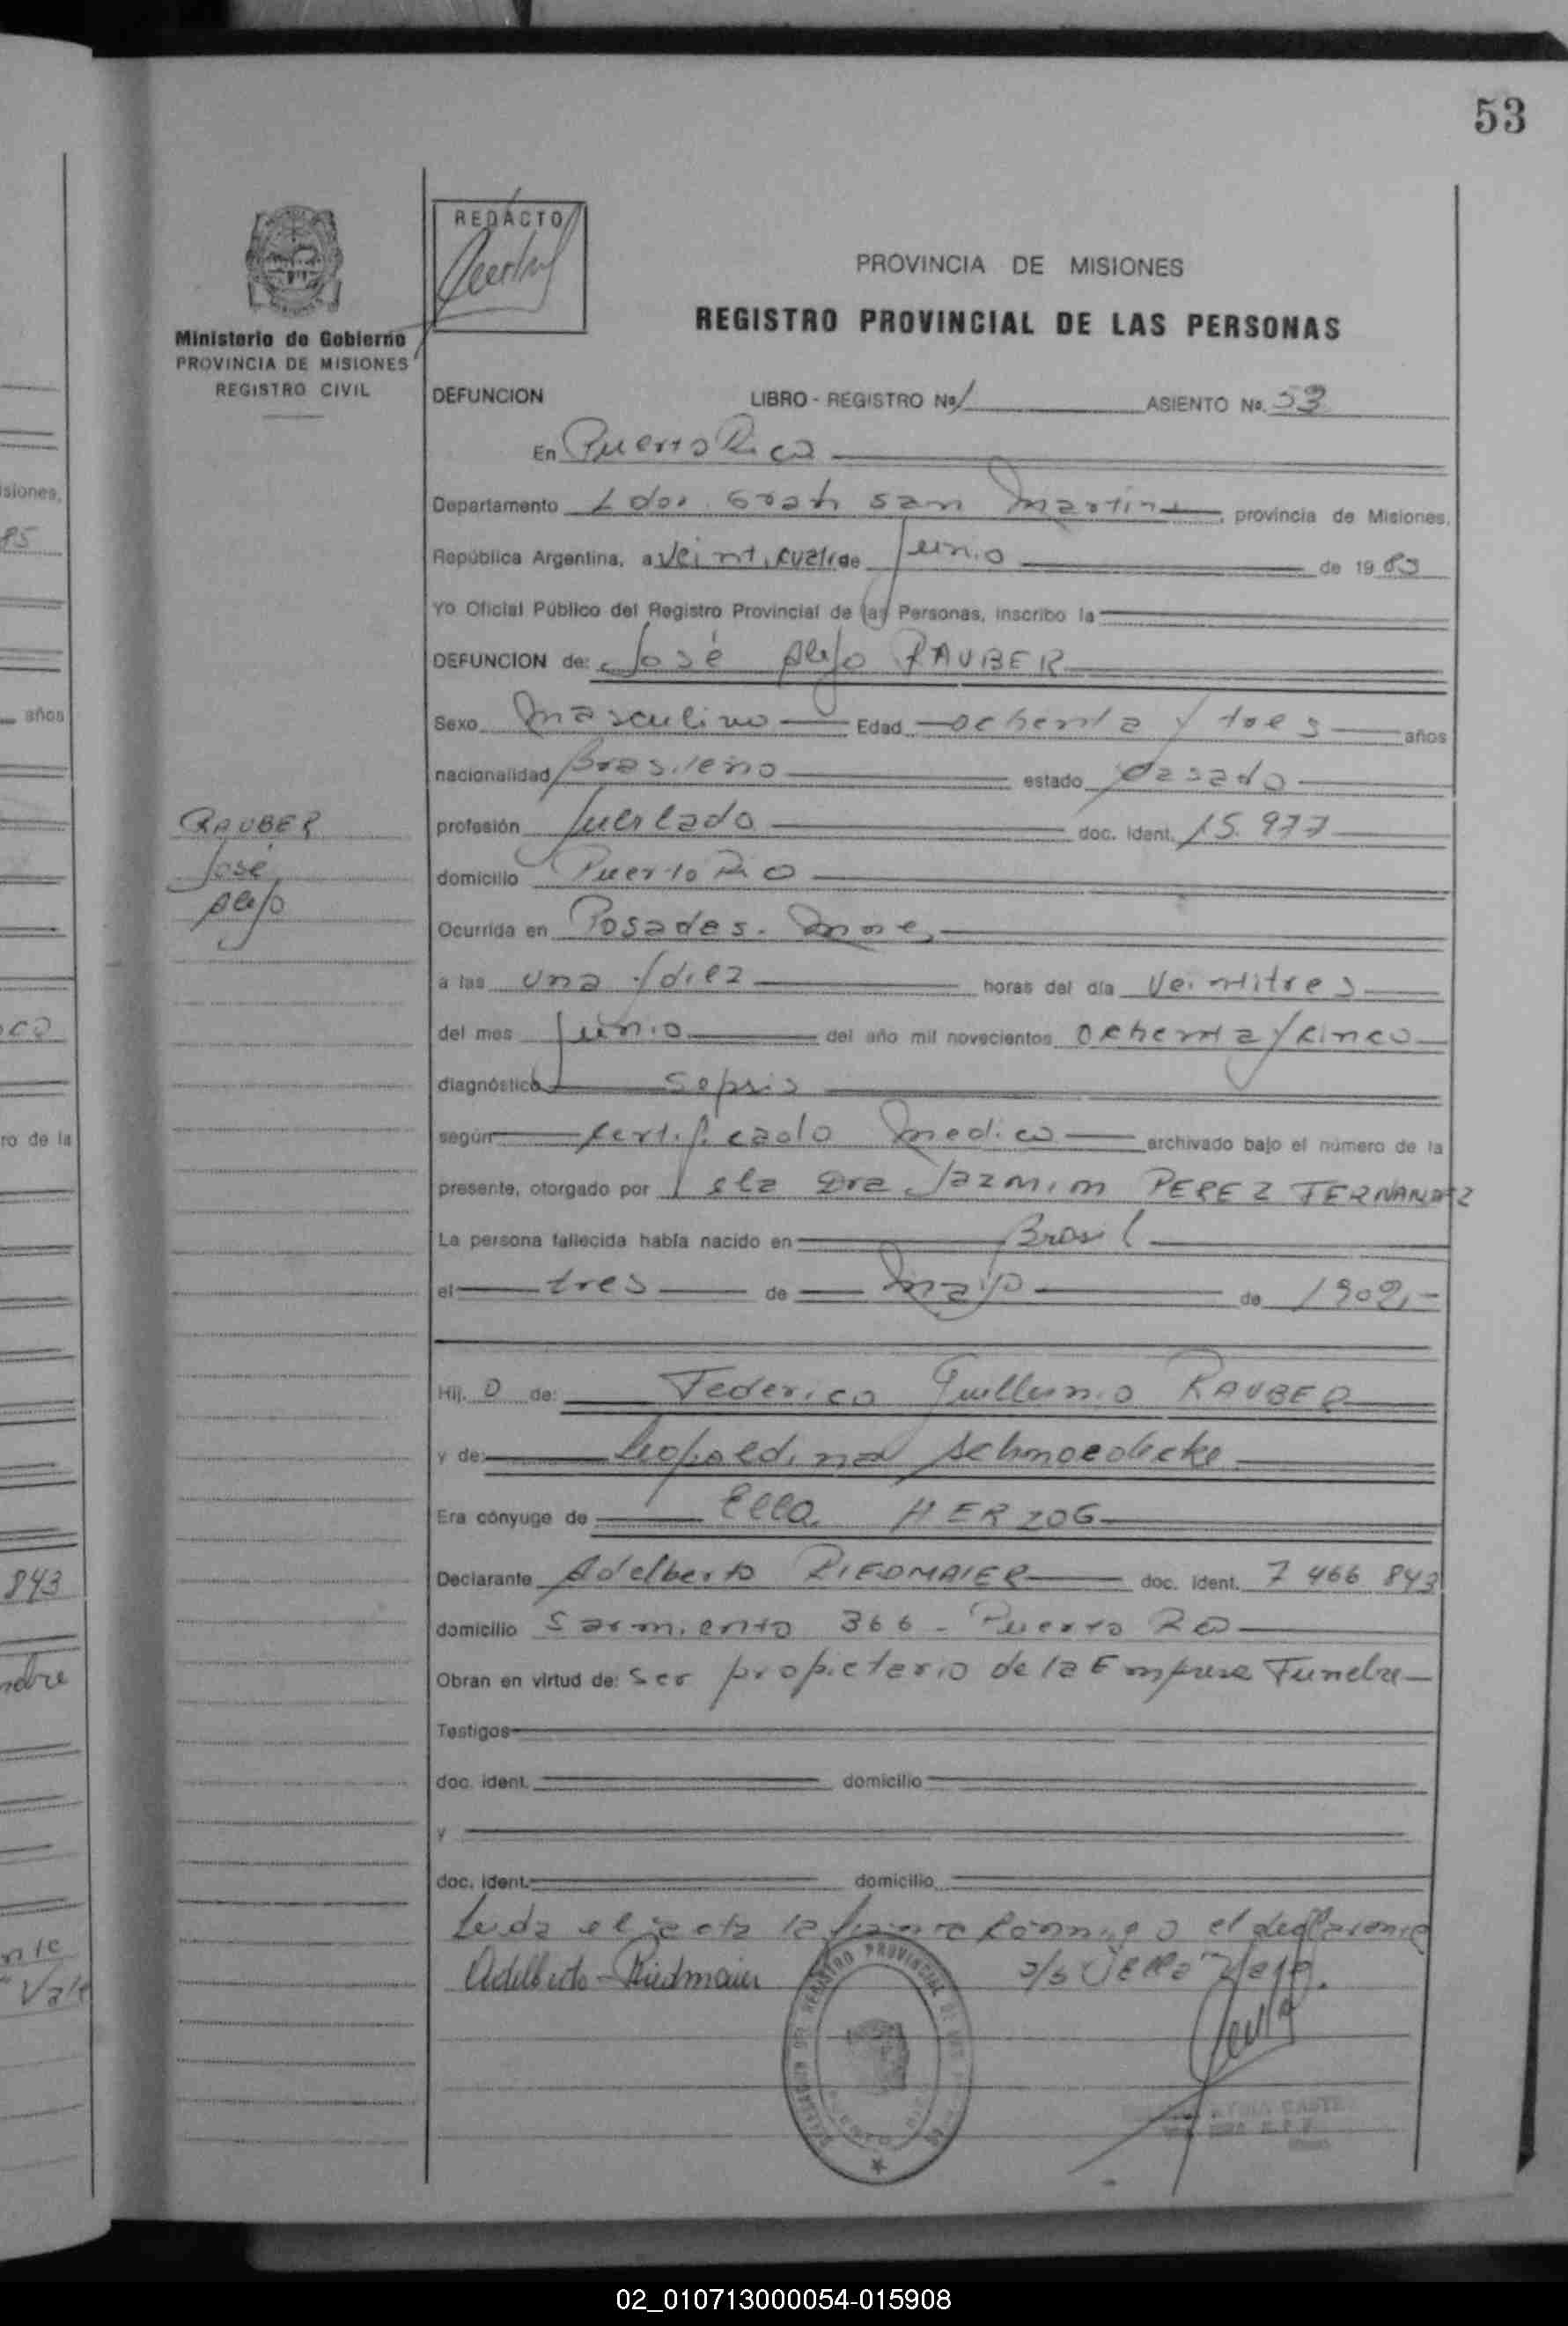 53
REDACTO
PROVINCIA DE MISIONES
REGISTRO PROVINCIAL DE LAS PERSONAS
Ministerio de Gobierno
PROVINCIA DE MISIONES
REGISTRO CIVIL
DEFUNCION LIBRO - REGISTRO No ASIENTO No. 53
En Puerto Rico
Departamento Ldor. Gral San Martín, provincia de Misiones,
República Argentina, a veinticuatro de Junio de 1985
Yo Oficial Público del Registro Provincial de las Personas, inscribo la
DEFUNCION de: José Alejo RAUBER
Sexo Masculino Edad ochenta y tres años
nacionalidad Brasileño estado Casado
RAUBER
José
Alejo
profesión Jubilado doc. ident. 15.977
domicilio Puerto Rico
Ocurrida en Posadas. Mnes,
a las una y diez horas del día Veintitres
del mes Junio del año mil novecientos ochenta y cinco
diagnóstico Sepsis
según certificado Medico archivado bajo el número de la
presente, otorgado por la Dra Jazmim PEREZ FERNANDEZ
La persona fallecida había nacido en Brasil
el tres de Mayo de 1902.-
Hij. o de: Federico Guillermo RAUBER
y de: Leopoldina Schmoedecke
Era cónyuge de Ella HERZOG
Declarante Adelberto RIEDMAIER doc. ident. 7 466 843
domicilio Sarmiento 366 - Puerto Rico
Obran en virtud de: Ser propietario de la Empresa Funebre
Testigos
doc. ident. domicilio
y
doc. ident. domicilio
Leida el acta la firma conmigo el declarante
Adelberto Riedmaier
siones,
85
años
ro de la
843
02_010713000054-015908